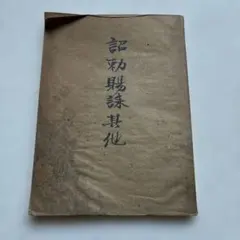 詔勅賜誄其他